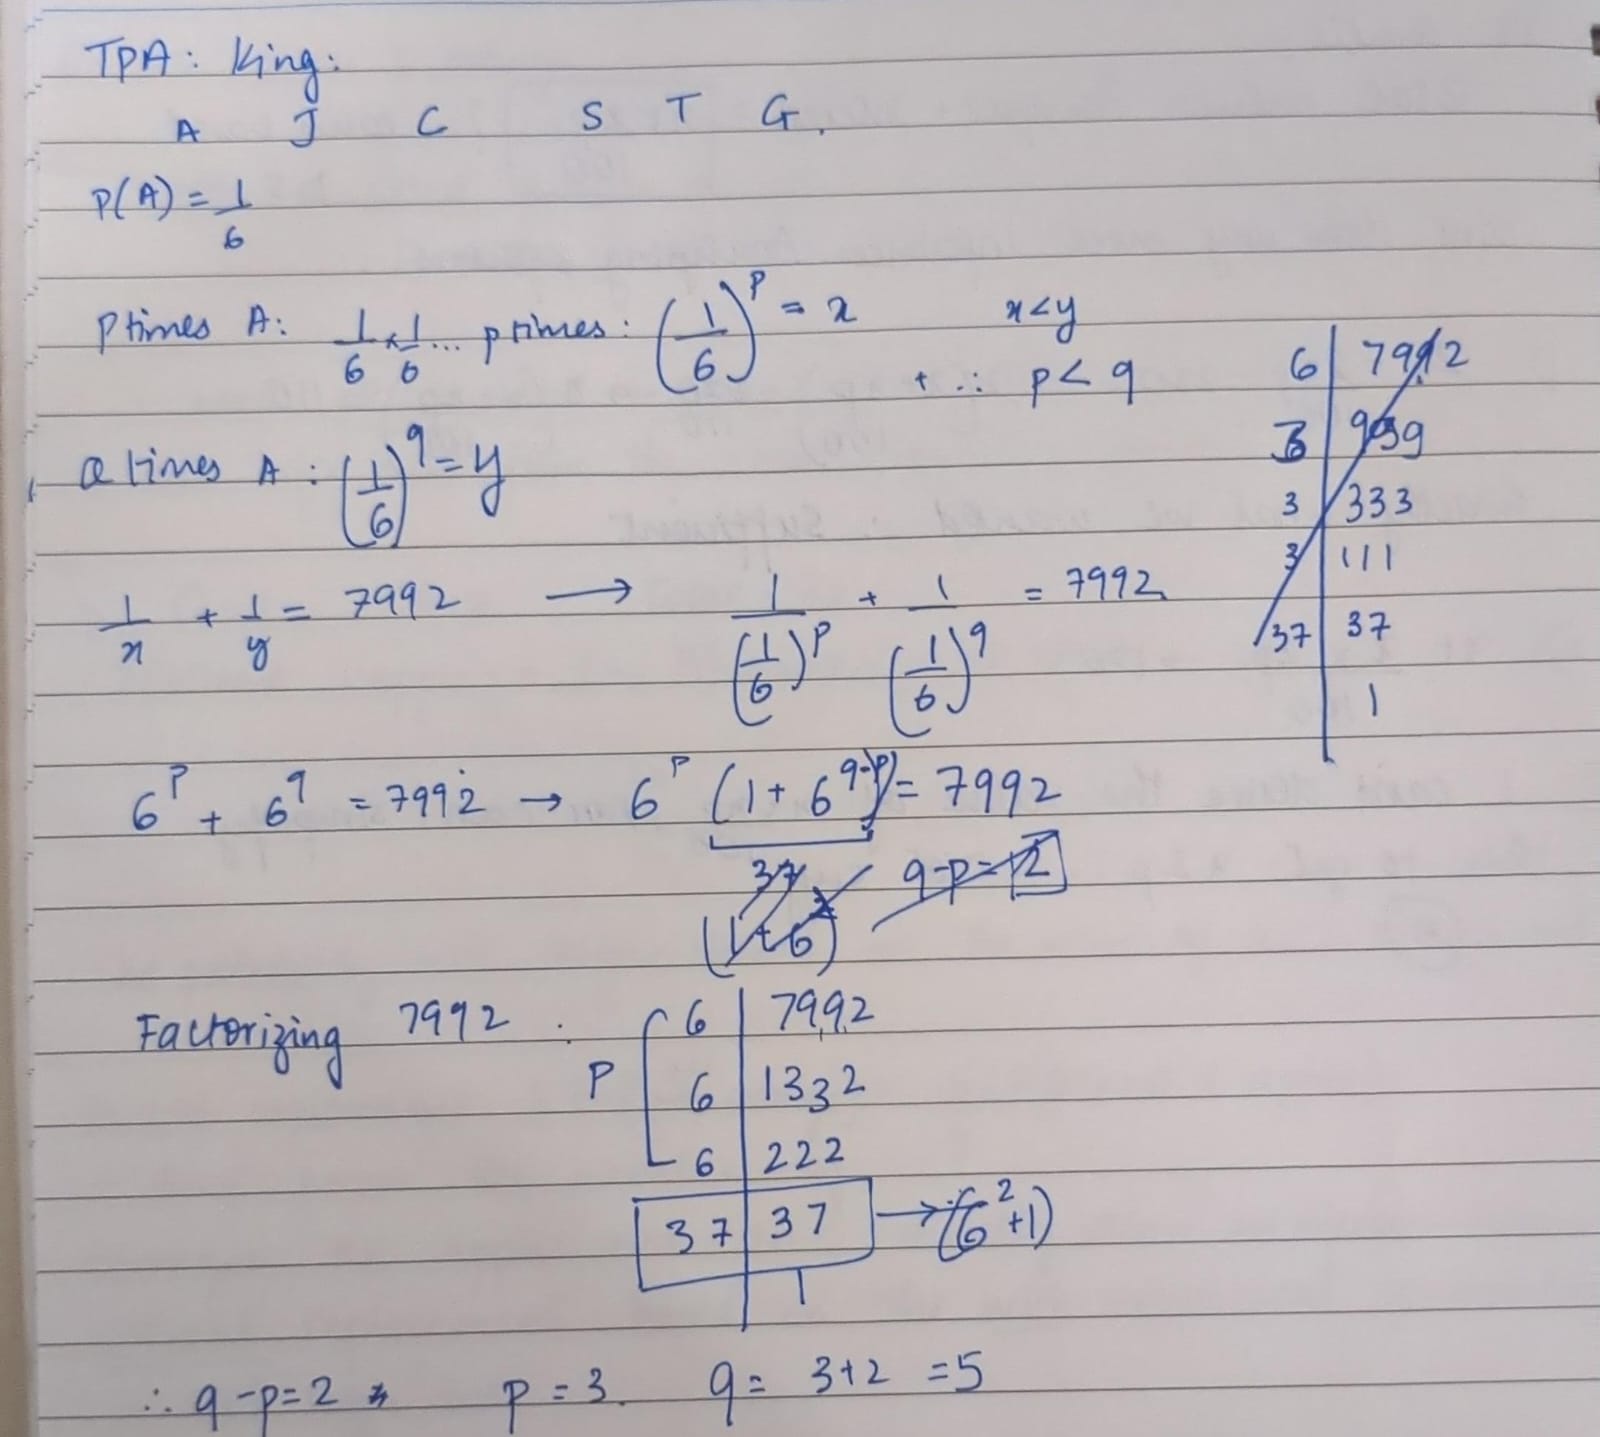 TPA: King:
A J C S T G.
P(A) = 1/6
P times A: 1/6 × 1/6 ... p times: (1/6)^p = x x<y
+ ∴ p<q
Q times A: (1/6)^q = y
1/x + 1/y = 7992 → 1/(1/6)^p + 1/(1/6)^q = 7992
6 | 7992
3 | 999
3 | 333
3 | 111
37 | 37
1
6^p + 6^q = 7992 → 6^p (1+6^(q-p)) = 7992
37 q-p=2
(1+6^2)
Factorizing 7992 .
6 | 7992
P 6 | 1332
6 | 222
37 | 37 → (6^2+1)
1
∴ q-p=2 p=3. q= 3+2 =5